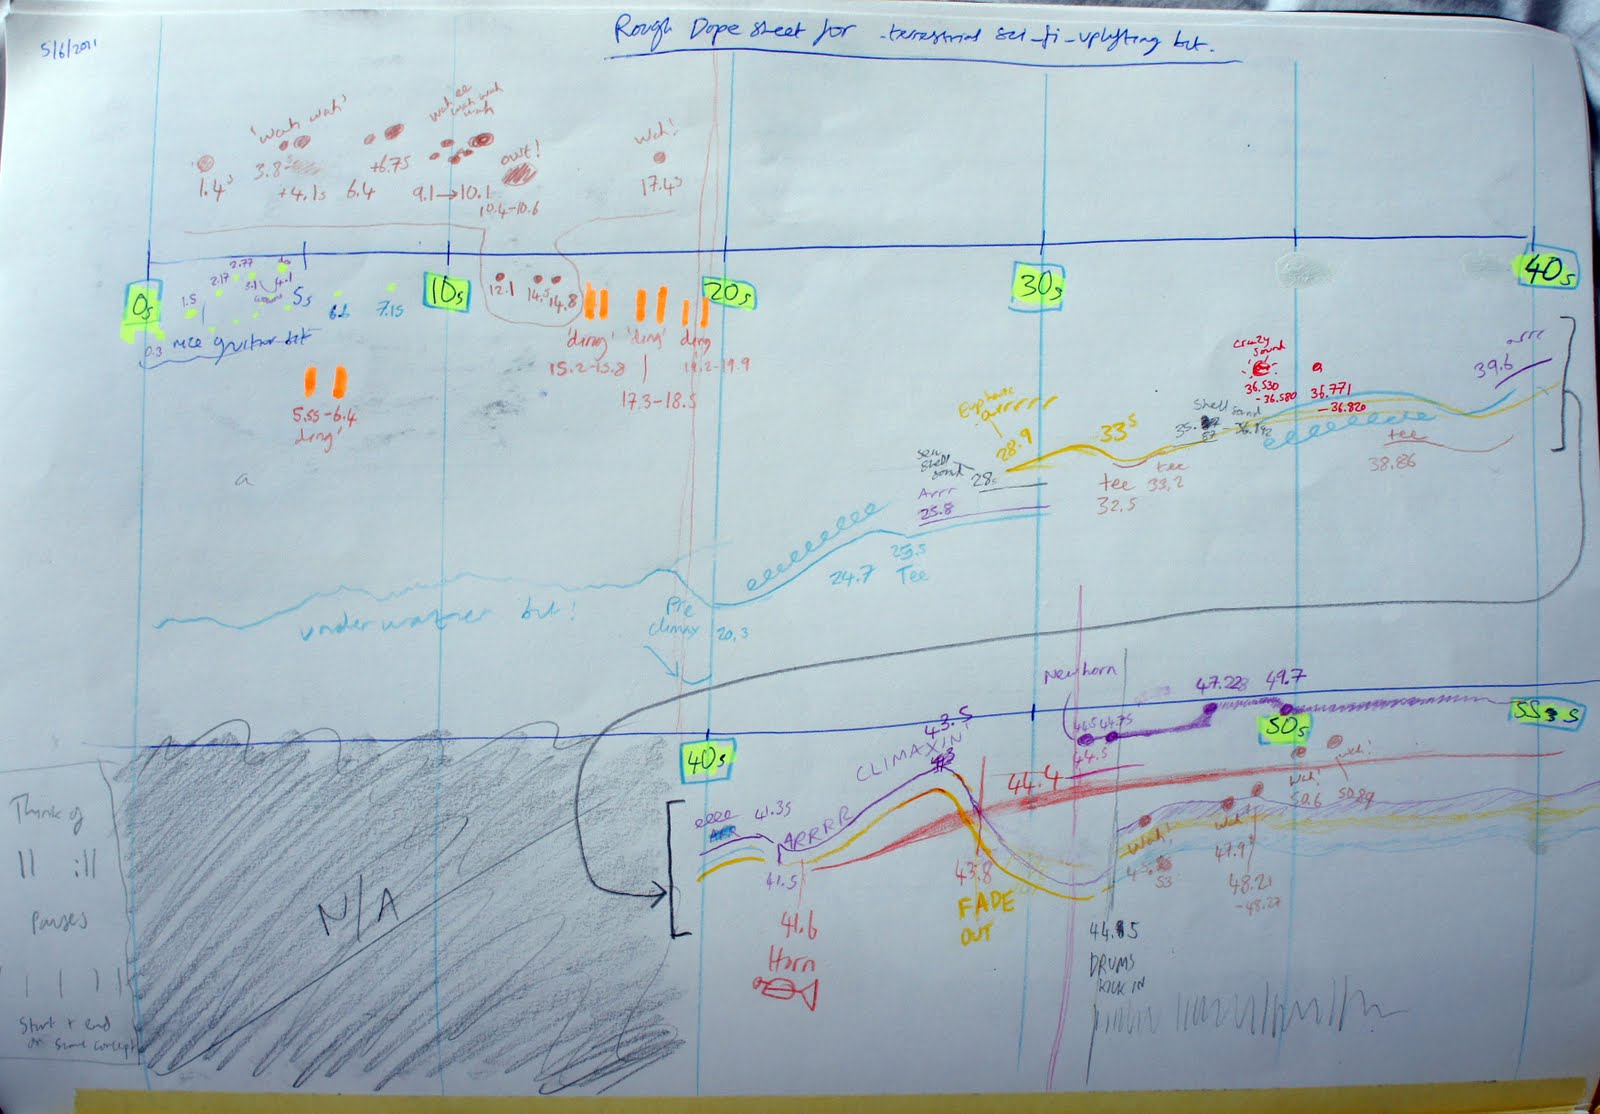 5/6/2011
Rough Dope sheet for -terrestrial sci-fi-uplifting bit.
'wah wah'
wah ee
wah wah
wah
owt!
wah!
1.4s
3.8s
+4.1s
6.4
+6.75
9.1→10.1
10.4-10.6
17.4s
0s
5s
10s
20s
30s
40s
1.5
2.17
2.77
3.1
4.1
6.6
7.15
0.3
nice guitar bit
12.1
14.5
14.8
5.55-6.4
ding'
'ding'
'ding'
ding
15.2-15.8
17.3-18.5
19.2-19.9
a
underwatner bit!
Pre
climax
20.3
24.7
25.5
Tee
Arrr
25.8
sea
shell
sound
28s
28.9
33s
tee
32.5
tee
33.2
Shell sound
crazy
sound
36.530
-36.580
36.771
-36.820
tee
38.86
arrr
39.6
New horn
44.5
44.75
47.228
49.7
40s
50s
55s
eeee
ARR
41.35
ARRRR
41.5
CLIMAXIN'
43.5
44.4
41.6
Horn
43.8
FADE
OUT
wah!
wah!
47.9
48.21
-48.27
wah!
50.6
wah!
50.89
DRUMS
KICK IN
N/A
Think of
|| :||
Pauses
Start + end
on same concept